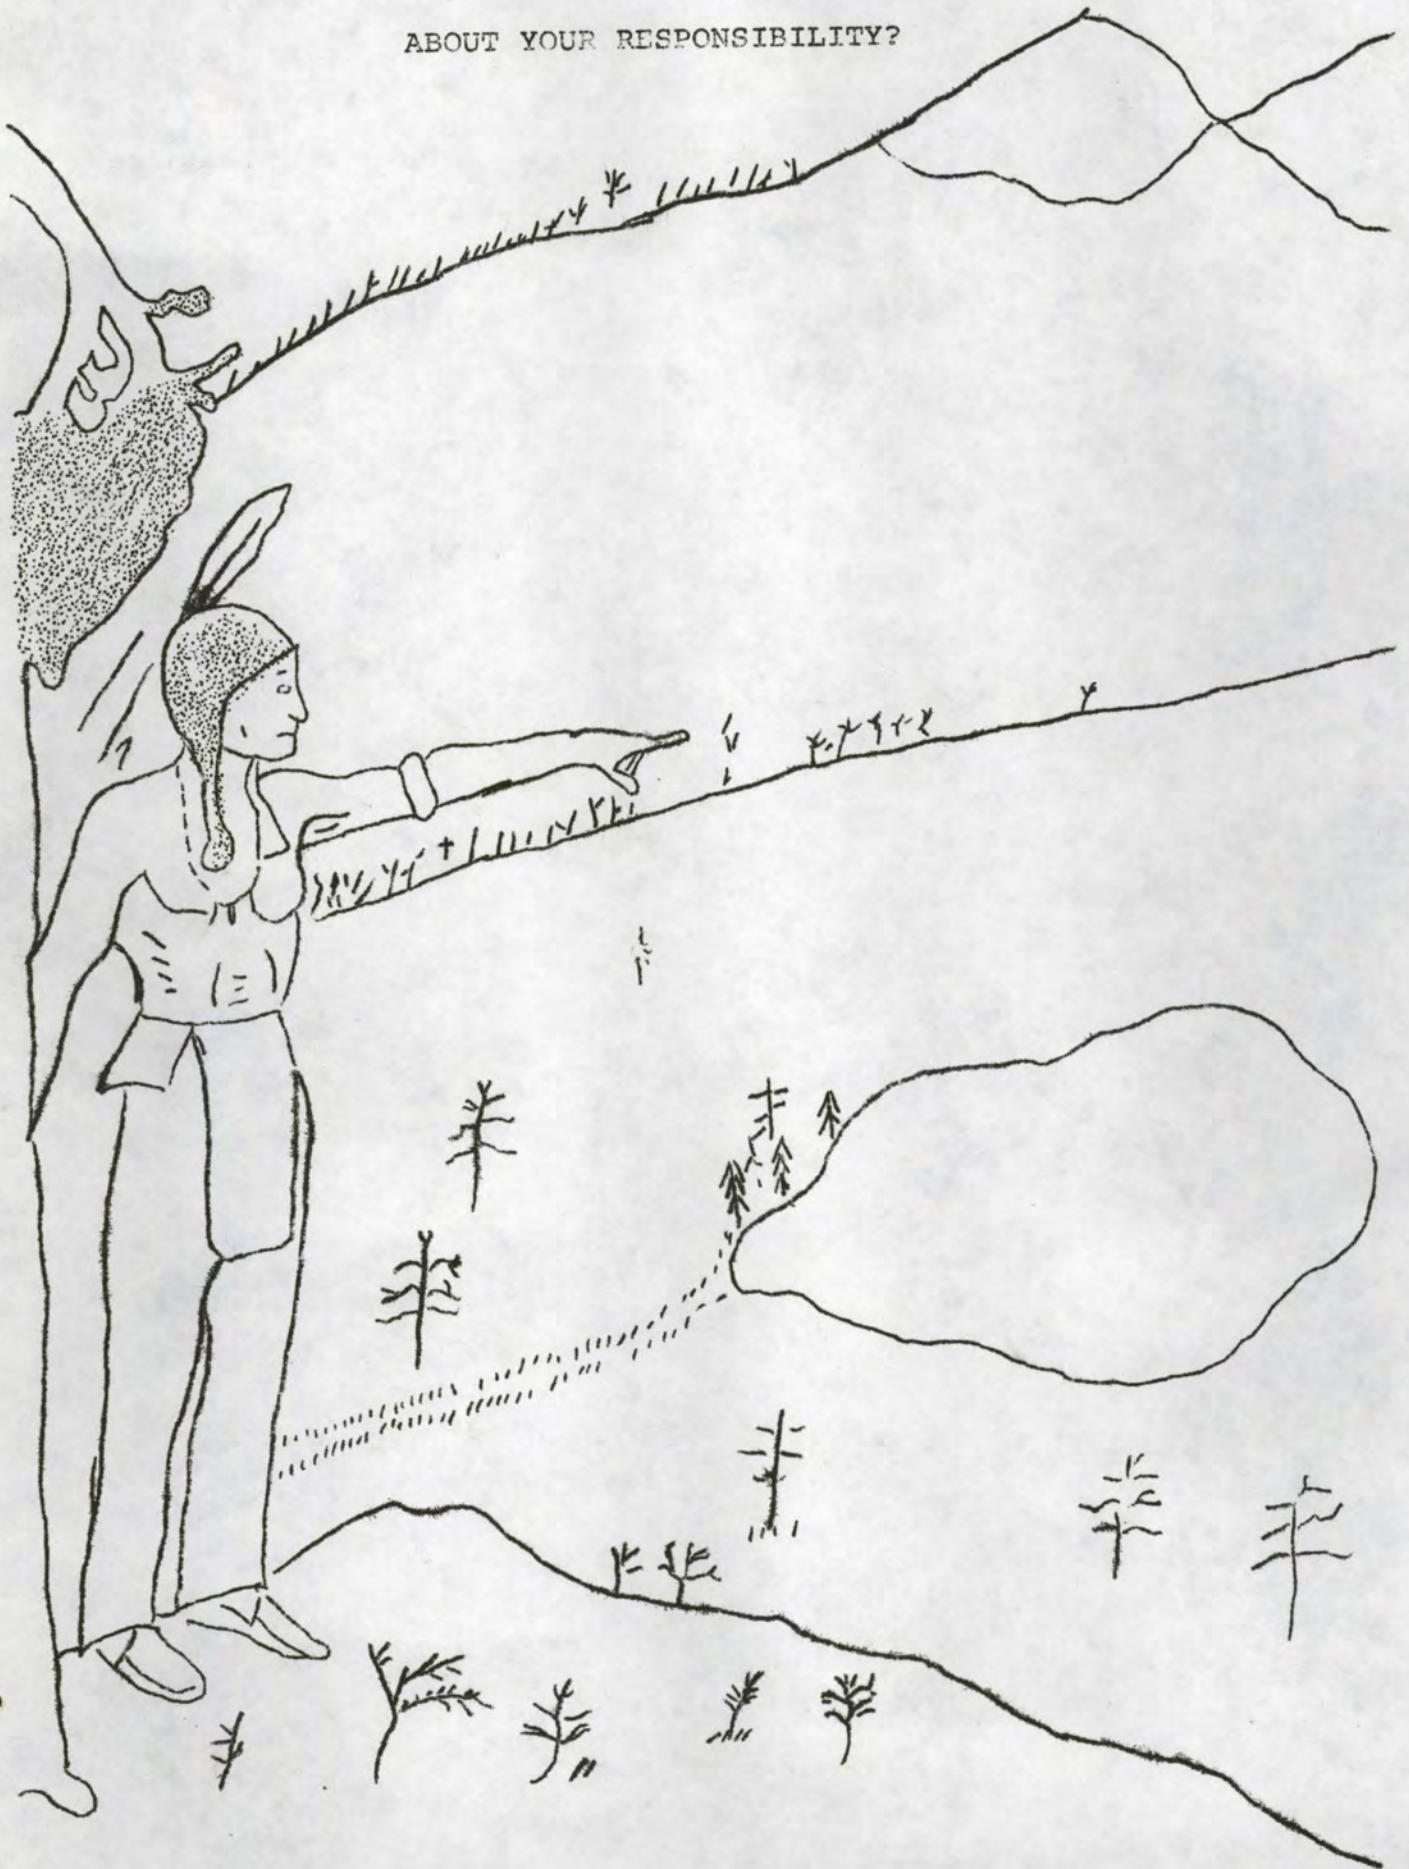 ABOUT YOUR RESPONSIBILITY?